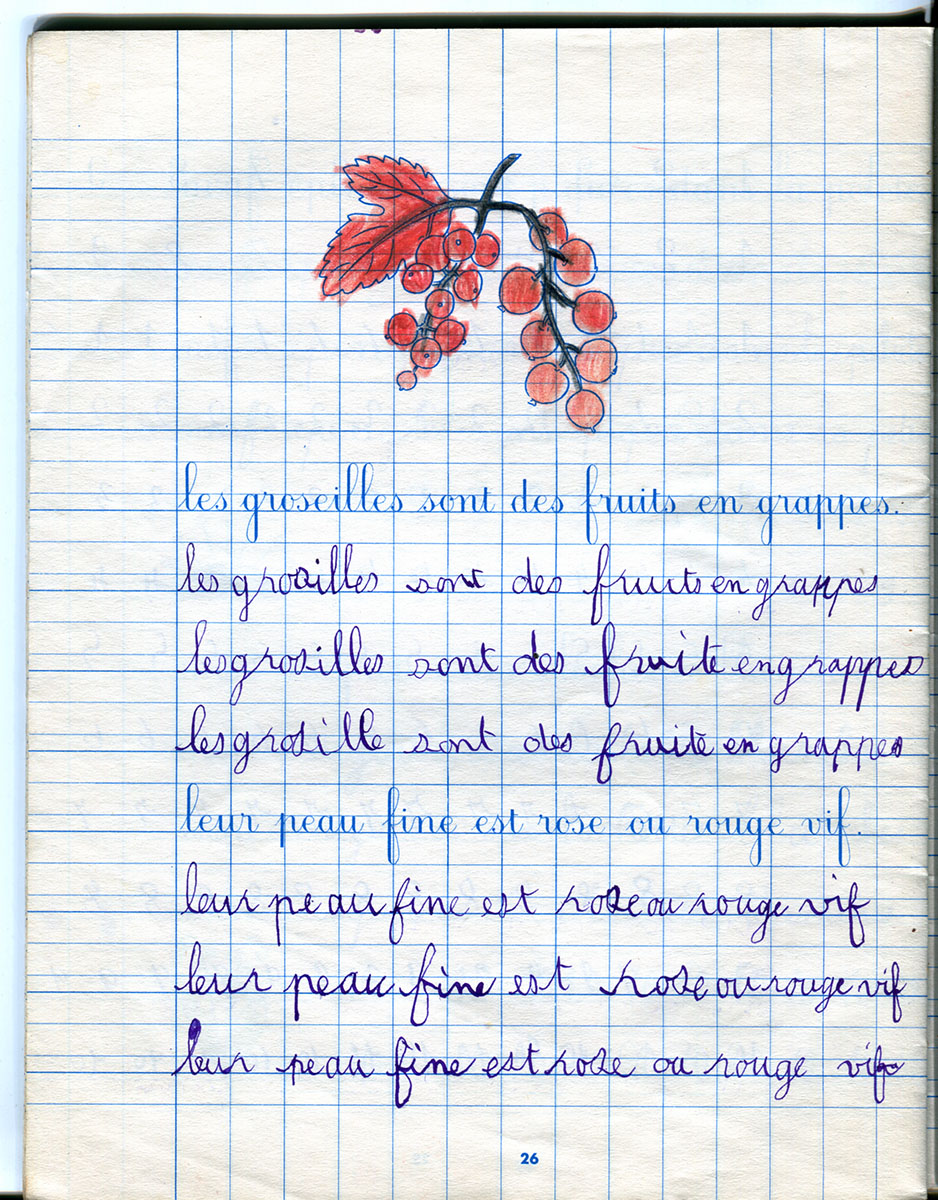 les groseilles sont des fruits en grappes.
les grosilles sont des fruits en grappes
les grosilles sont des fruite en grappes
les grosille sont des fruite en grappes
leur peau fine est rose ou rouge vif.
leur peau fine est rose ou rouge vif
leur peau fine est rose ou rouge vif
leur peau fine est rose ou rouge vif
26